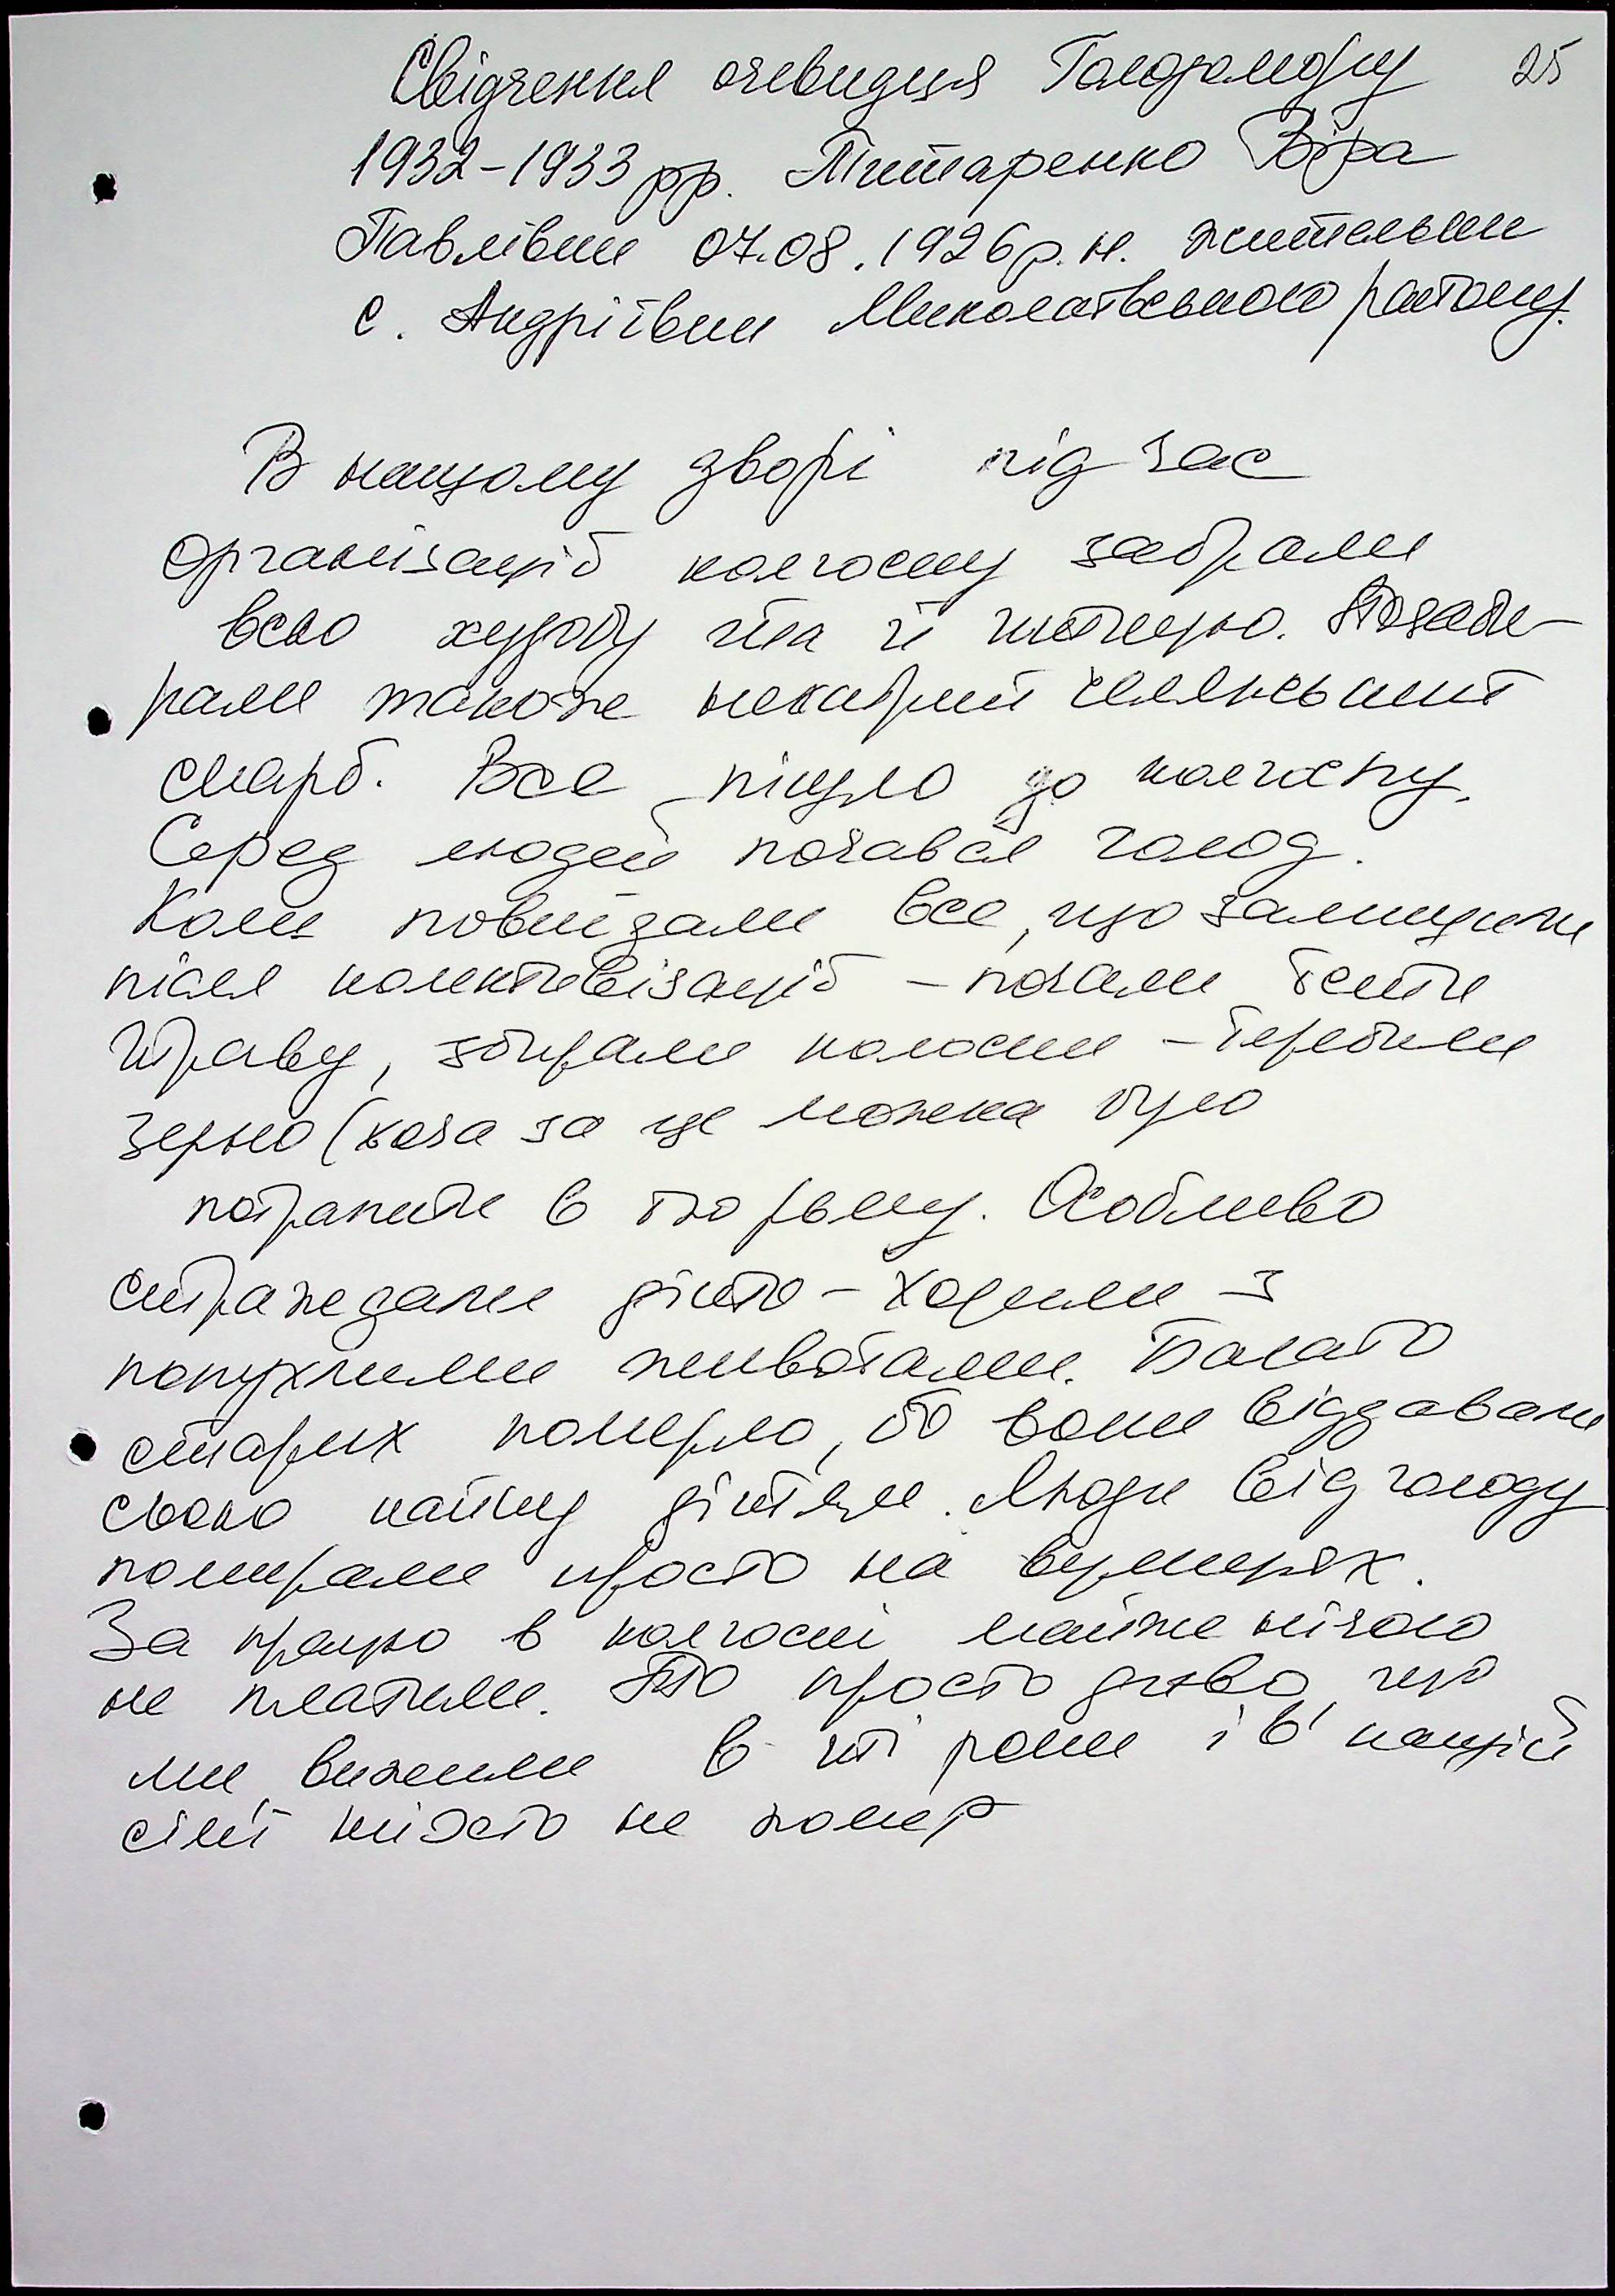 Свідчення очевидця Голодомору 25
1932-1933 рр. Питаренко Віра
Павлівни 07.08.1926 р.н. жительки
с. Андріївки Миколаївського району.
В нашому дворі під час
організації колгоспу забрали
всю худобу та й птицю. Позаби-
рали також нехитрий селянський
скарб. Все пішло до колгоспу.
Серед людей почався голод.
Коли повиїдали все, що залишили
після колективізації – почали їсти
траву, збирали колоски – теребили
зерно (хоча за це можна було
потрапити в тюрьму. Особливо
страждали діти – ходили з
попухлими животами. Багато
старих померло, бо вони віддавали
свою пайку дітям. Люди від голоду
помирали просто на вулицях.
За працю в колгоспі майже нічого
не платили. То просто диво, що
ми вижили в ті роки і в нашій
сім'ї ніхто не помер